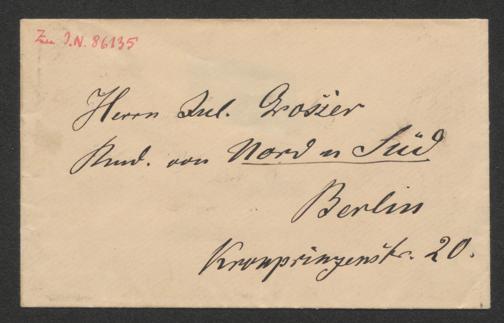 Zu I.N. 86135
Herrn Jul. Grosser
Red. von Nord u Süd
Berlin
Kronprinzenstr. 20.